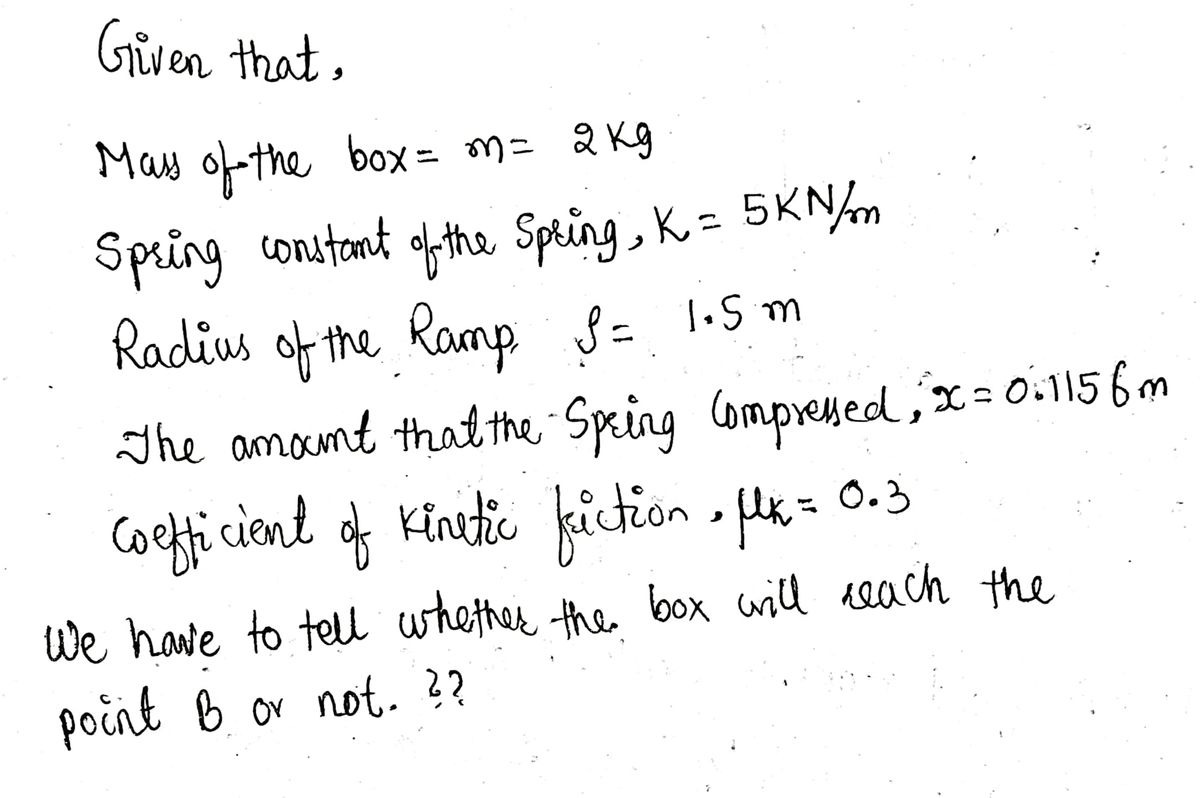 Given that,
Mass of the box = m = 2 Kg
Spring constant of the Spring, K = 5KN/m
Radius of the Ramp, ρ = 1.5 m
The amount that the Spring Compressed, x = 0.1156m
Coefficient of Kinetic friction, μK = 0.3
We have to tell whether the box will reach the
point B or not. ??